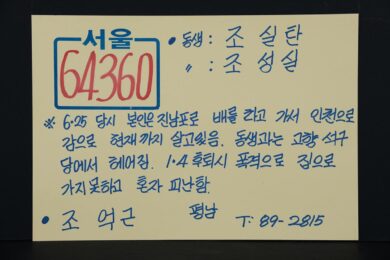 서울
64360
• 동생 : 조 실 탄
〃 : 조 성 실
※ 6·25 당시 본인은 진남포로 배를 타고 가서 인천으로
감으로 현재까지 살고있음. 동생과는 고향 석구
당에서 헤어짐. 1·4 후퇴시 폭격으로 집으로
가지못하고 혼자 피난함.
• 조 억 근 평남 T. 89-2815